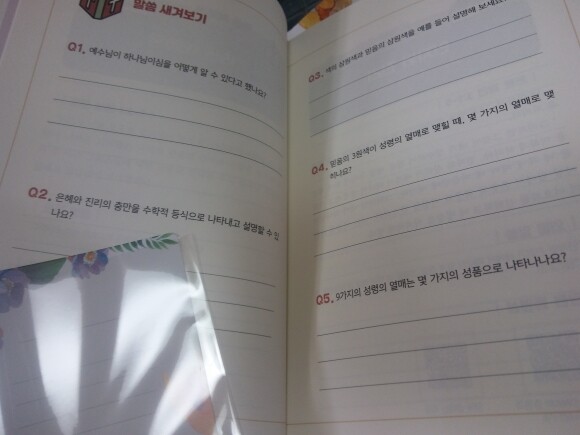 말씀 새겨보기
Q1. 예수님이 하나님이심을 어떻게 알 수 있다고 했나요?
Q2. 은혜와 진리의 충만을 수학적 등식으로 나타내고 설명할 수 있
나요?
Q3. 색의 삼원색과 믿음의 삼원색을 예를 들어 설명해 보세요.
Q4. 믿음의 3원색이 성령의 열매로 맺힐 때, 몇 가지의 열매로 맺
하나요?
Q5. 9가지의 성령의 열매는 몇 가지의 성품으로 나타나나요?